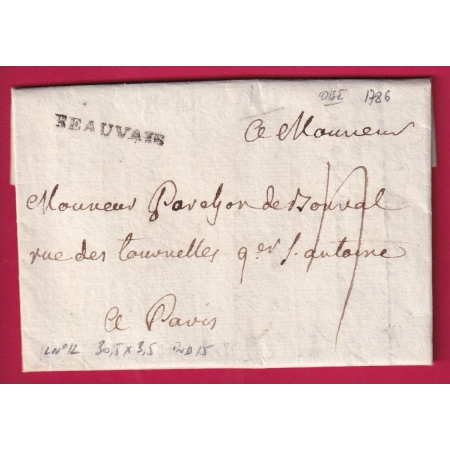 OISE 1786
BEAUVAIS
A Monsieur
Monsieur Parelyon de Bonval
rue des tournelles qer S. antoine
A Paris
LN°12 30,5 x 3,5 IND 15